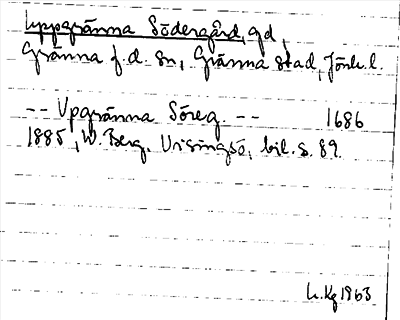 Uppgränna Södergård, gd,
Gränna f.d. sn, Gränna stad, Jönk. l.
-- Upgränna Söreg. -- 1686
1885, W. Berg. Visingsö, bil. s. 89.
L. Kg 1963